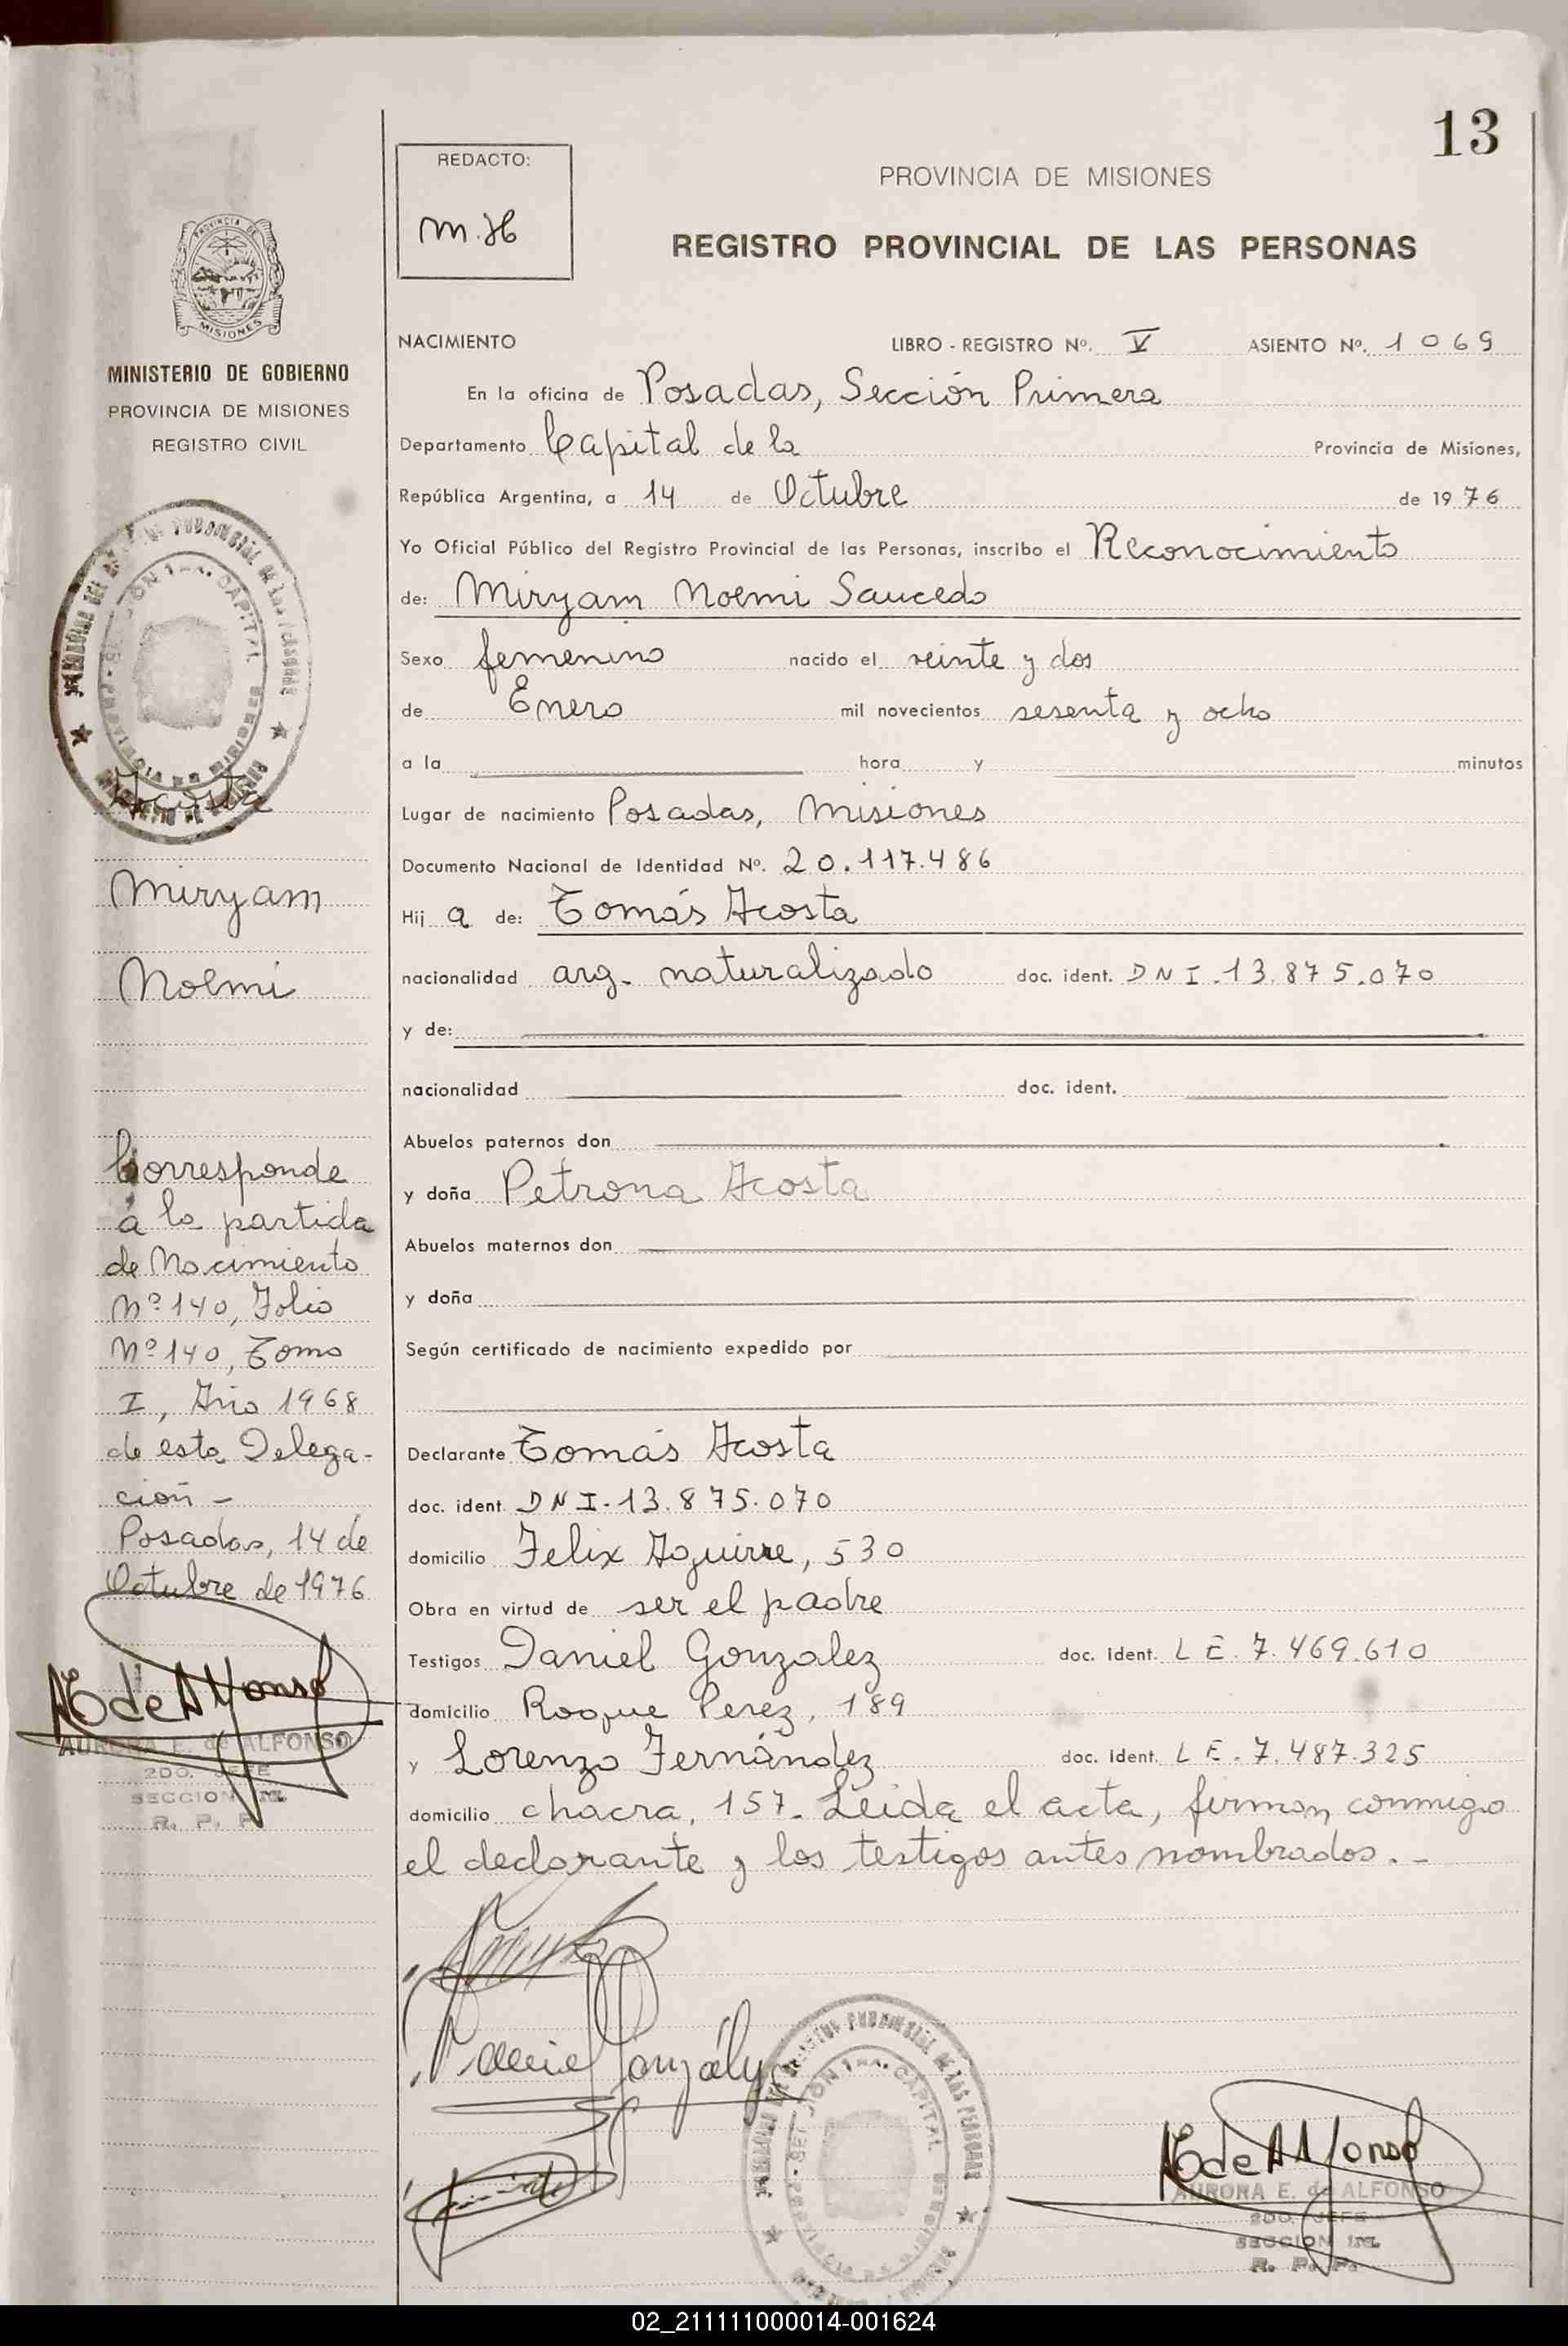 13
REDACTO:
M.H
PROVINCIA DE MISIONES
REGISTRO PROVINCIAL DE LAS PERSONAS
PROVINCIA DE
MISIONES
MINISTERIO DE GOBIERNO
PROVINCIA DE MISIONES
REGISTRO CIVIL
Acosta
Miryam
Noemi
Corresponde
a la partida
de Nacimiento
Nº 140, Folio
Nº 140, Tomo
I, Año 1968
de esta Delega-
ción -
Posadas, 14 de
Octubre de 1976
AE de Alfonso
AURORA E. de ALFONSO
2DO. JEFE
SECCION 1ra.
R. P. P.
NACIMIENTO LIBRO - REGISTRO Nº. V ASIENTO Nº. 1069
En la oficina de Posadas, Sección Primera
Departamento Capital de la Provincia de Misiones,
República Argentina, a 14 de Octubre de 1976
Yo Oficial Público del Registro Provincial de las Personas, inscribo el Reconocimiento
de: Miryam Noemi Saucedo
Sexo femenino nacido el veinte y dos
de Enero mil novecientos sesenta y ocho
a la hora y minutos
Lugar de nacimiento Posadas, Misiones
Documento Nacional de Identidad Nº. 20.117.486
Hij a de: Tomás Acosta
nacionalidad arg. naturalizado doc. ident. DNI.13.875.070
y de:
nacionalidad doc. ident.
Abuelos paternos don
y doña Petrona Acosta
Abuelos maternos don
y doña
Según certificado de nacimiento expedido por
Declarante Tomás Acosta
doc. ident. DNI-13.875.070
domicilio Felix Aguirre, 530
Obra en virtud de ser el padre
Testigos Daniel Gonzalez doc. ident. LE.7.469.610
domicilio Roque Perez, 189
y Lorenzo Fernández doc. ident. LE.7.487.325
domicilio chacra, 157. Leida el acta, firman conmigo
el declarante y los testigos antes nombrados. -
AE de Alfonso
AURORA E. de ALFONSO
2DO. JEFE
SECCION 1ra.
R. P. P.
02_211111000014-001624